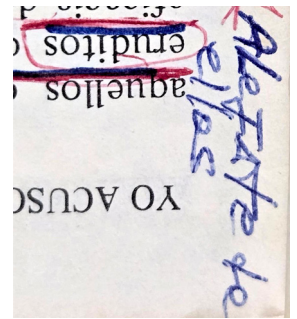 YO ACUSO
aquellos
eruditos
Alejate de
ellas